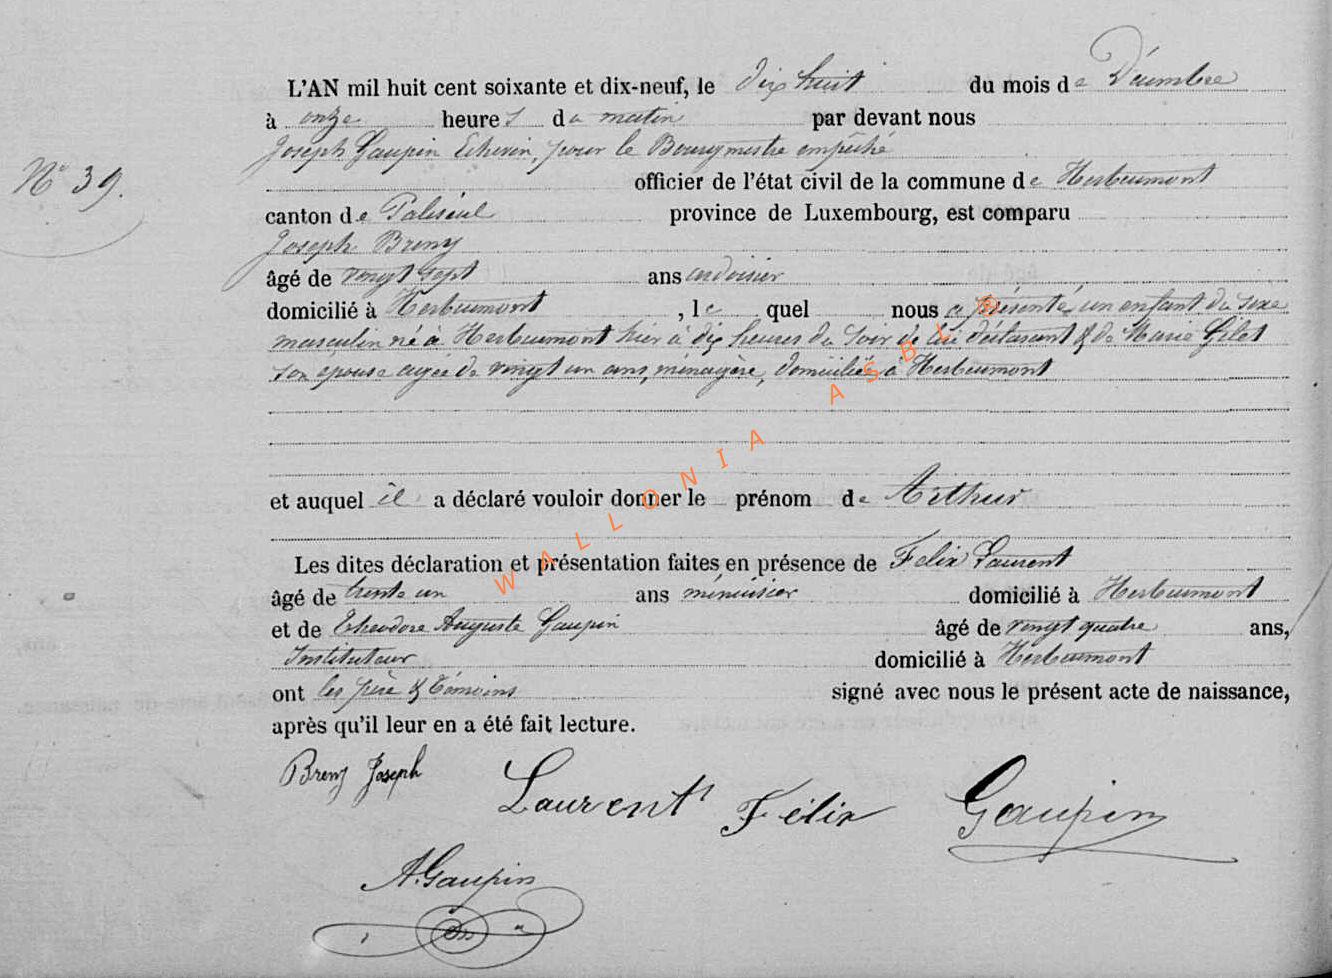 L'AN mil huit cent soixante et dix-neuf, le dix huit du mois de Décembre
à onze heures du matin par devant nous
Joseph Gaupin Echevin, pour le Bourgmestre empêché
N° 39. officier de l'état civil de la commune de Herbeumont
canton de Paliseul province de Luxembourg, est comparu
Joseph Breny
âgé de vingt sept ans ardoisier
domicilié à Herbeumont, lequel nous a présenté un enfant du sexe
masculin né à Herbeumont hier à dix heures du soir de lui déclarant & de Marie Gilet
son épouse agée de vingt un ans, ménagère, domiciliée à Herbeumont
et auquel il a déclaré vouloir donner le prénom de Arthur
Les dites déclaration et présentation faites en présence de Felix Laurent
âgé de trente un ans menuisier domicilié à Herbeumont
et de Theodore Auguste Gaupin âgé de vingt quatre ans,
Instituteur domicilié à Herbeumont
ont les père & témoins signé avec nous le présent acte de naissance,
après qu'il leur en a été fait lecture.
Breny Joseph Laurent Félix Gaupin
A. Gaupin
WALLONIA ASBL ®